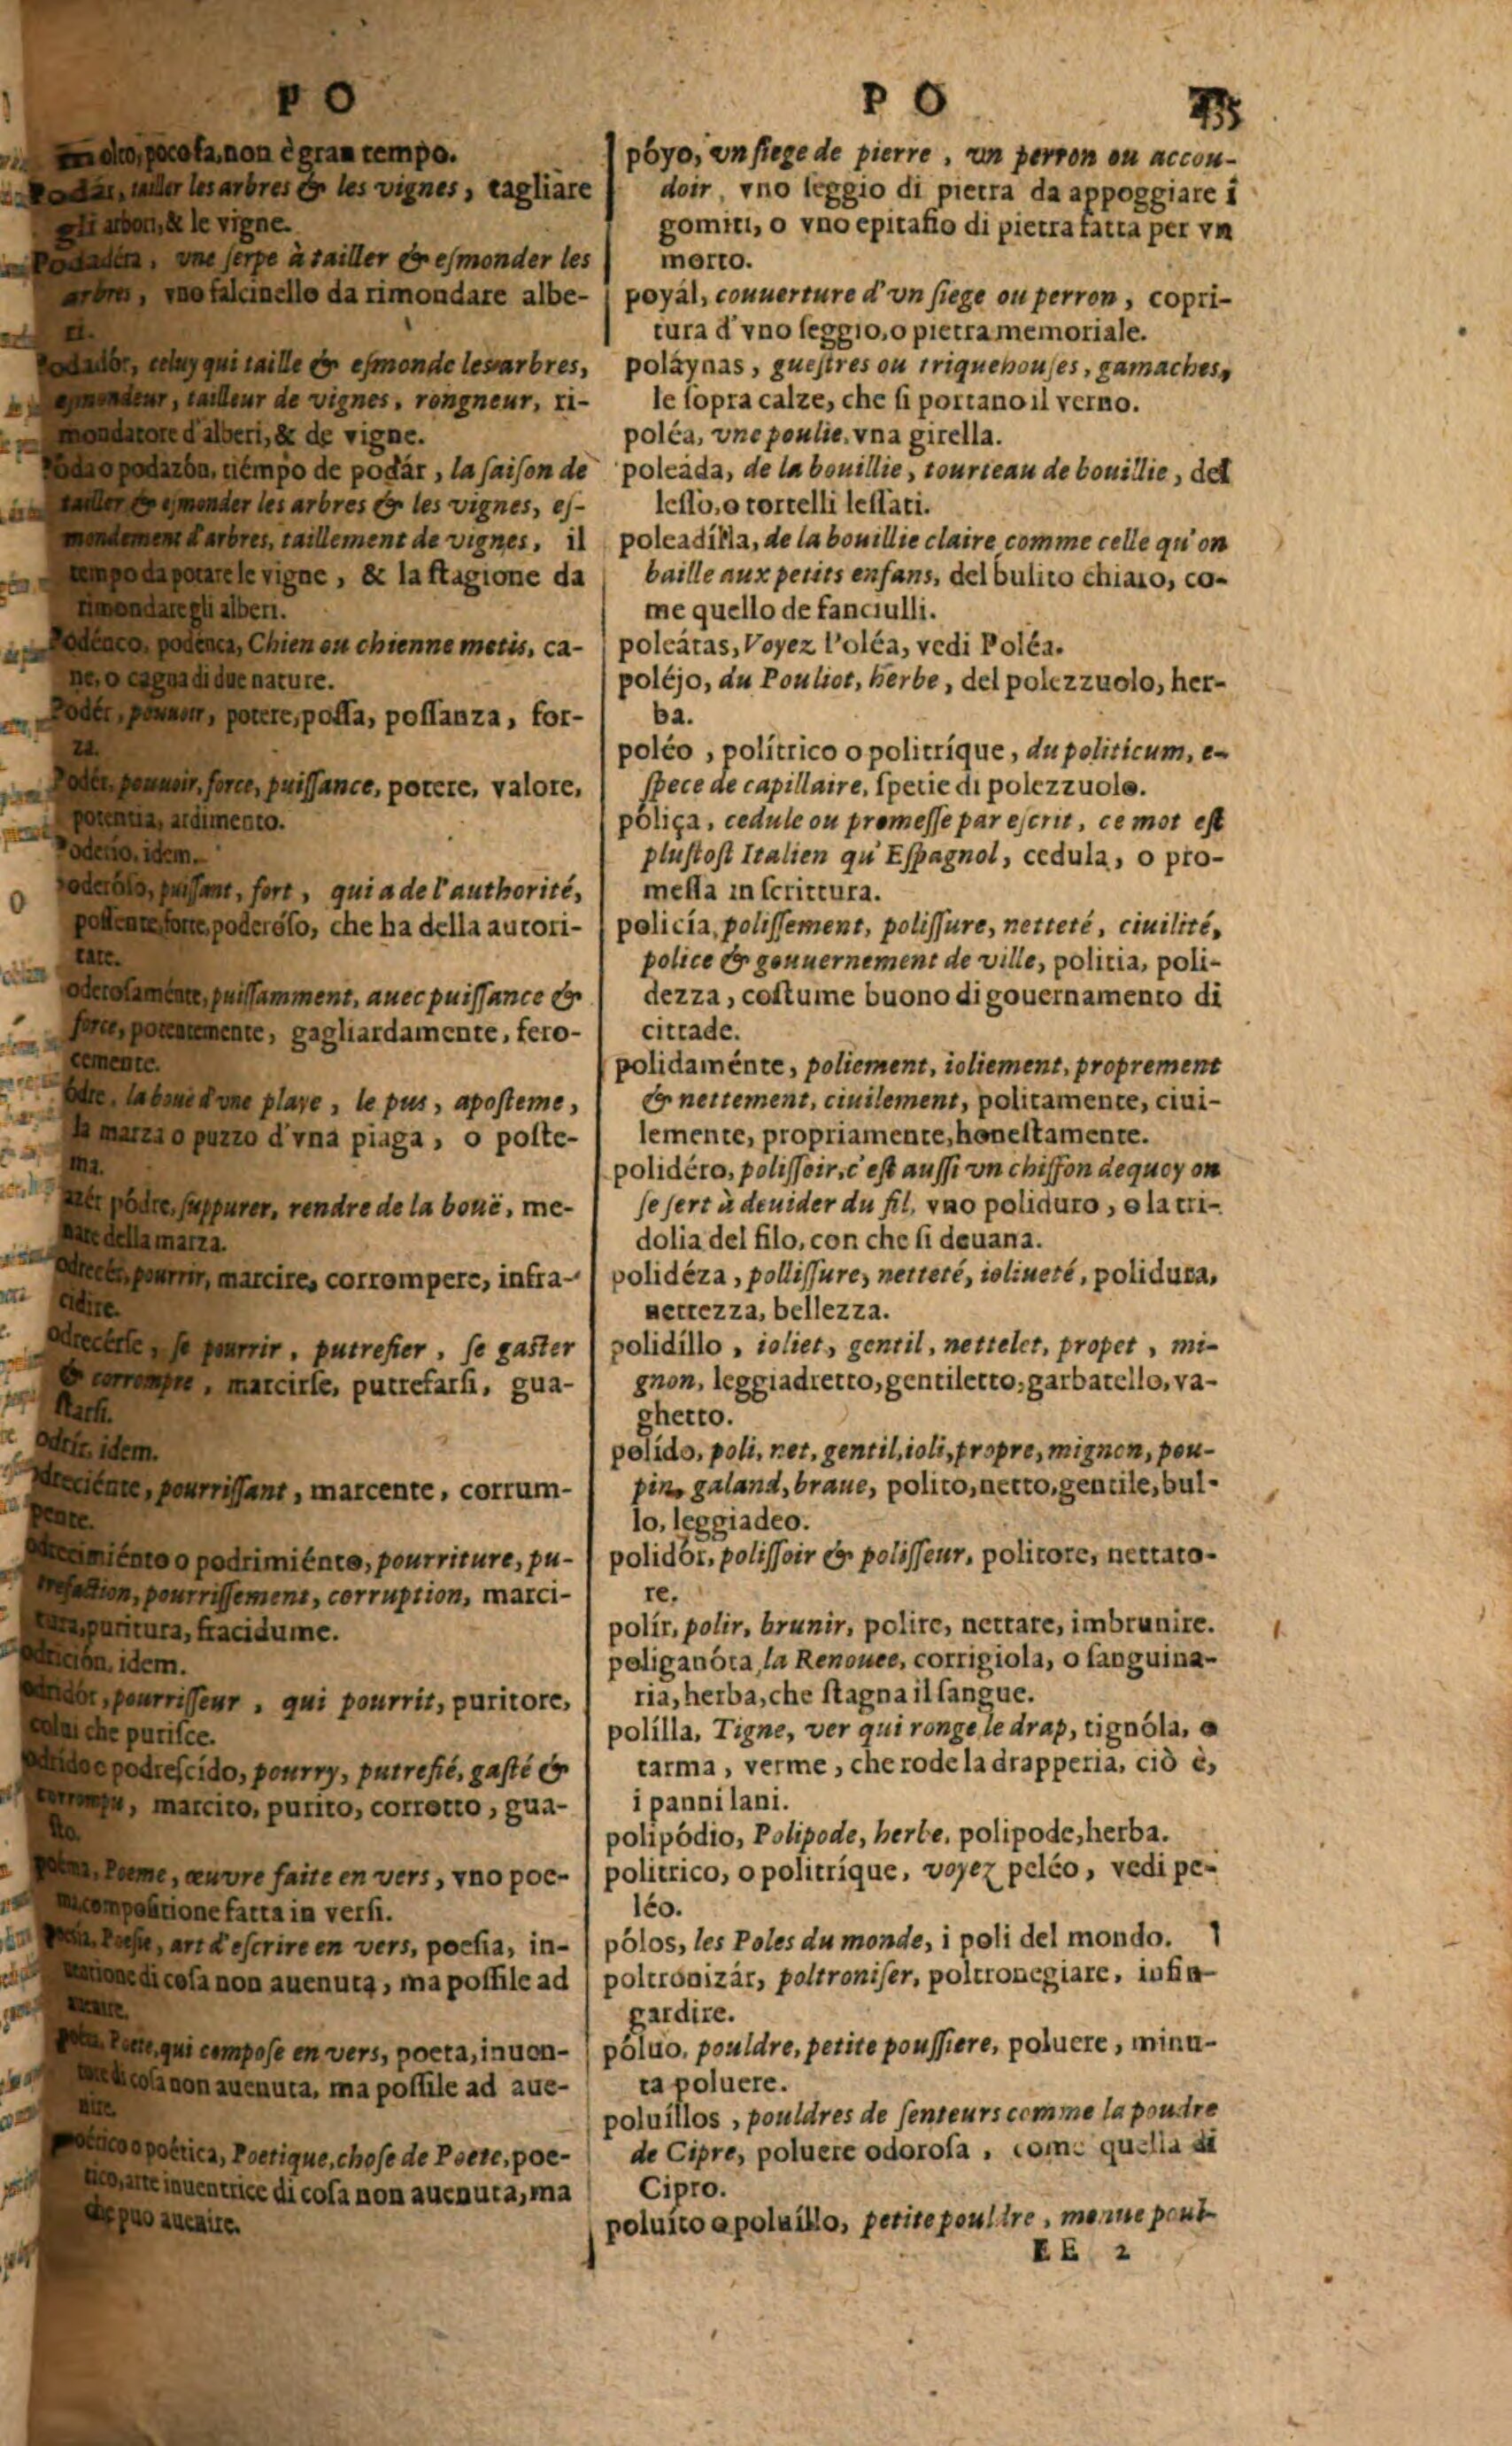 P O
non è gran tempo.
les arbres & les vignes, tagliare
& le vigne.
vne ſerpe à tailler & eſmonder les
vno falcinello da rimondare albe-
ri.
Podadór, celuy qui taille & eſmonde les arbres,
tailleur de vignes, rongneur, ri-
mondatore d'alberi, & de vigne.
o podazón, tiémpo de podár, la ſaiſon de
tailler & eſmonder les arbres & les vignes, eſ-
mondement d'arbres, taillement de vignes, il
tempo da potare le vigne, & la ſtagione da
rimondare gli alberi.
Podénco, podénca, Chien ou chienne metis, ca-
ne, o cagna di due nature.
Podér, pouuoir, potere, poſſa, poſſanza, for-
za.
Podér, pouuoir, force, puiſſance, potere, valore,
potentia, ardimento.
idem.
puiſſant, fort, qui a de l'authorité,
poſſente, forte, poderóſo, che ha della autori-
tate.
oderoſaménte, puiſſamment, auec puiſſance &
force, potentemente, gagliardamente, fero-
cemente.
odre, la bouë d'vne playe, le pus, apoſteme,
la marza o puzzo d'vna piaga, o poſte-
ma.
pódre, ſuppurer, rendre de la bouë, me-
nare della marza.
pourrir, marcire, corrompere, infra-
cidire.
odrecérſe, ſe pourrir, putrefier, ſe gaſter
& corrompre, marcirſe, putrefarſi, gua-
ſtarſi.
odrír, idem.
pourriſſant, marcente, corrum-
pente.
o podrimiénto, pourriture, pu-
trefaction, pourriſſement, corruption, marci-
tura, puritura, fracidume.
idem.
pourriſſeur, qui pourrit, puritore,
colui che puriſce.
podreſcído, pourry, putrefié, gaſté &
corrompu, marcito, purito, corrotto, gua-
ſto.
Poeme, œuvre faite en vers, vno poe-
ma compoſitione fatta in verſi.
Poeſie, art d'eſcrire en vers, poeſia, in-
di coſa non auenuta, ma poſſile ad
Poete, qui compoſe en vers, poeta, inuen-
di coſa non auenuta, ma poſſile ad aue-
nire.
o poética, Poetique, choſe de Poete, poe-
tico, arte inuentrice di coſa non auenuta, ma
che puo auenire.
P O
póyo, vn ſiege de pierre, vn perron ou accou-
doir, vno ſeggio di pietra da appoggiare i
gomiti, o vno epitafio di pietra fatta per vn
morto.
poyál, couuerture d'vn ſiege ou perron, copri-
tura d'vno ſeggio, o pietra memoriale.
poláynas, gueſtres ou triquehouſes, gamaches,
le ſopra calze, che ſi portano il verno.
poléa, vne poulie, vna girella.
poleáda, de la bouillie, tourteau de bouillie, del
leſſo, o tortelli leſſati.
poleadílla, de la bouillie claire comme celle qu'on
baille aux petits enfans, del bulito chiaro, co-
me quello de fanciulli.
poleátas, Voyez Poléa, vedi Poléa.
poléjo, du Pouliot, herbe, del polezzuolo, her-
ba.
poléo, polítrico o politríque, du politicum, e-
ſpece de capillaire, ſpetie di polezzuolo.
póliça, cedule ou promeſſe par eſcrit, ce mot eſt
pluſtoſt Italien qu'Eſpagnol, cedula, o pro-
meſſa in ſcrittura.
policía, poliſſement, poliſſure, netteté, ciuilité,
police & gouuernement de ville, politia, poli-
dezza, coſtume buono di gouernamento di
cittade.
polidaménte, poliement, ioliement, proprement
& nettement, ciuilement, politamente, ciui-
lemente, propriamente, honeſtamente.
polidéro, poliſſoir, c'eſt auſſi vn chiffon dequoy on
ſe ſert à deuider du fil, vno poliduro, o la tri-
dolia del filo, con che ſi deuana.
polidéza, polliſſure, netteté, ioliueté, polidura,
nettezza, bellezza.
polidíllo, ioliet, gentil, nettelet, propet, mi-
gnon, leggiadretto, gentiletto, garbatello, va-
ghetto.
polído, poli, net, gentil, ioli, propre, mignon, pou-
pin, galand, braue, polito, netto, gentile, bul-
lo, leggiadeo.
polidór, poliſſoir & poliſſeur, politore, nettato-
re.
polír, polir, brunir, polire, nettare, imbrunire.
poliganóta, la Renouee, corrigiola, o ſanguina-
ria, herba, che ſtagna il ſangue.
polílla, Tigne, ver qui ronge le drap, tignóla, o
tarma, verme, che rode la drapperia, ciò è,
i panni lani.
polipódio, Polipode, herbe, polipode, herba.
politrico, o politríque, voyez peléo, vedi pe-
léo.
pólos, les Poles du monde, i poli del mondo.
poltronizár, poltroniſer, poltronegiare, infin-
gardire.
póluo, pouldre, petite pouſſiere, poluere, minu-
ta poluere.
poluíllos, pouldres de ſenteurs comme la poudre
de Cipre, poluere odoroſa, come quella di
Cipro.
poluíto o poluíllo, petite pouldre, menue poul-
EE 2